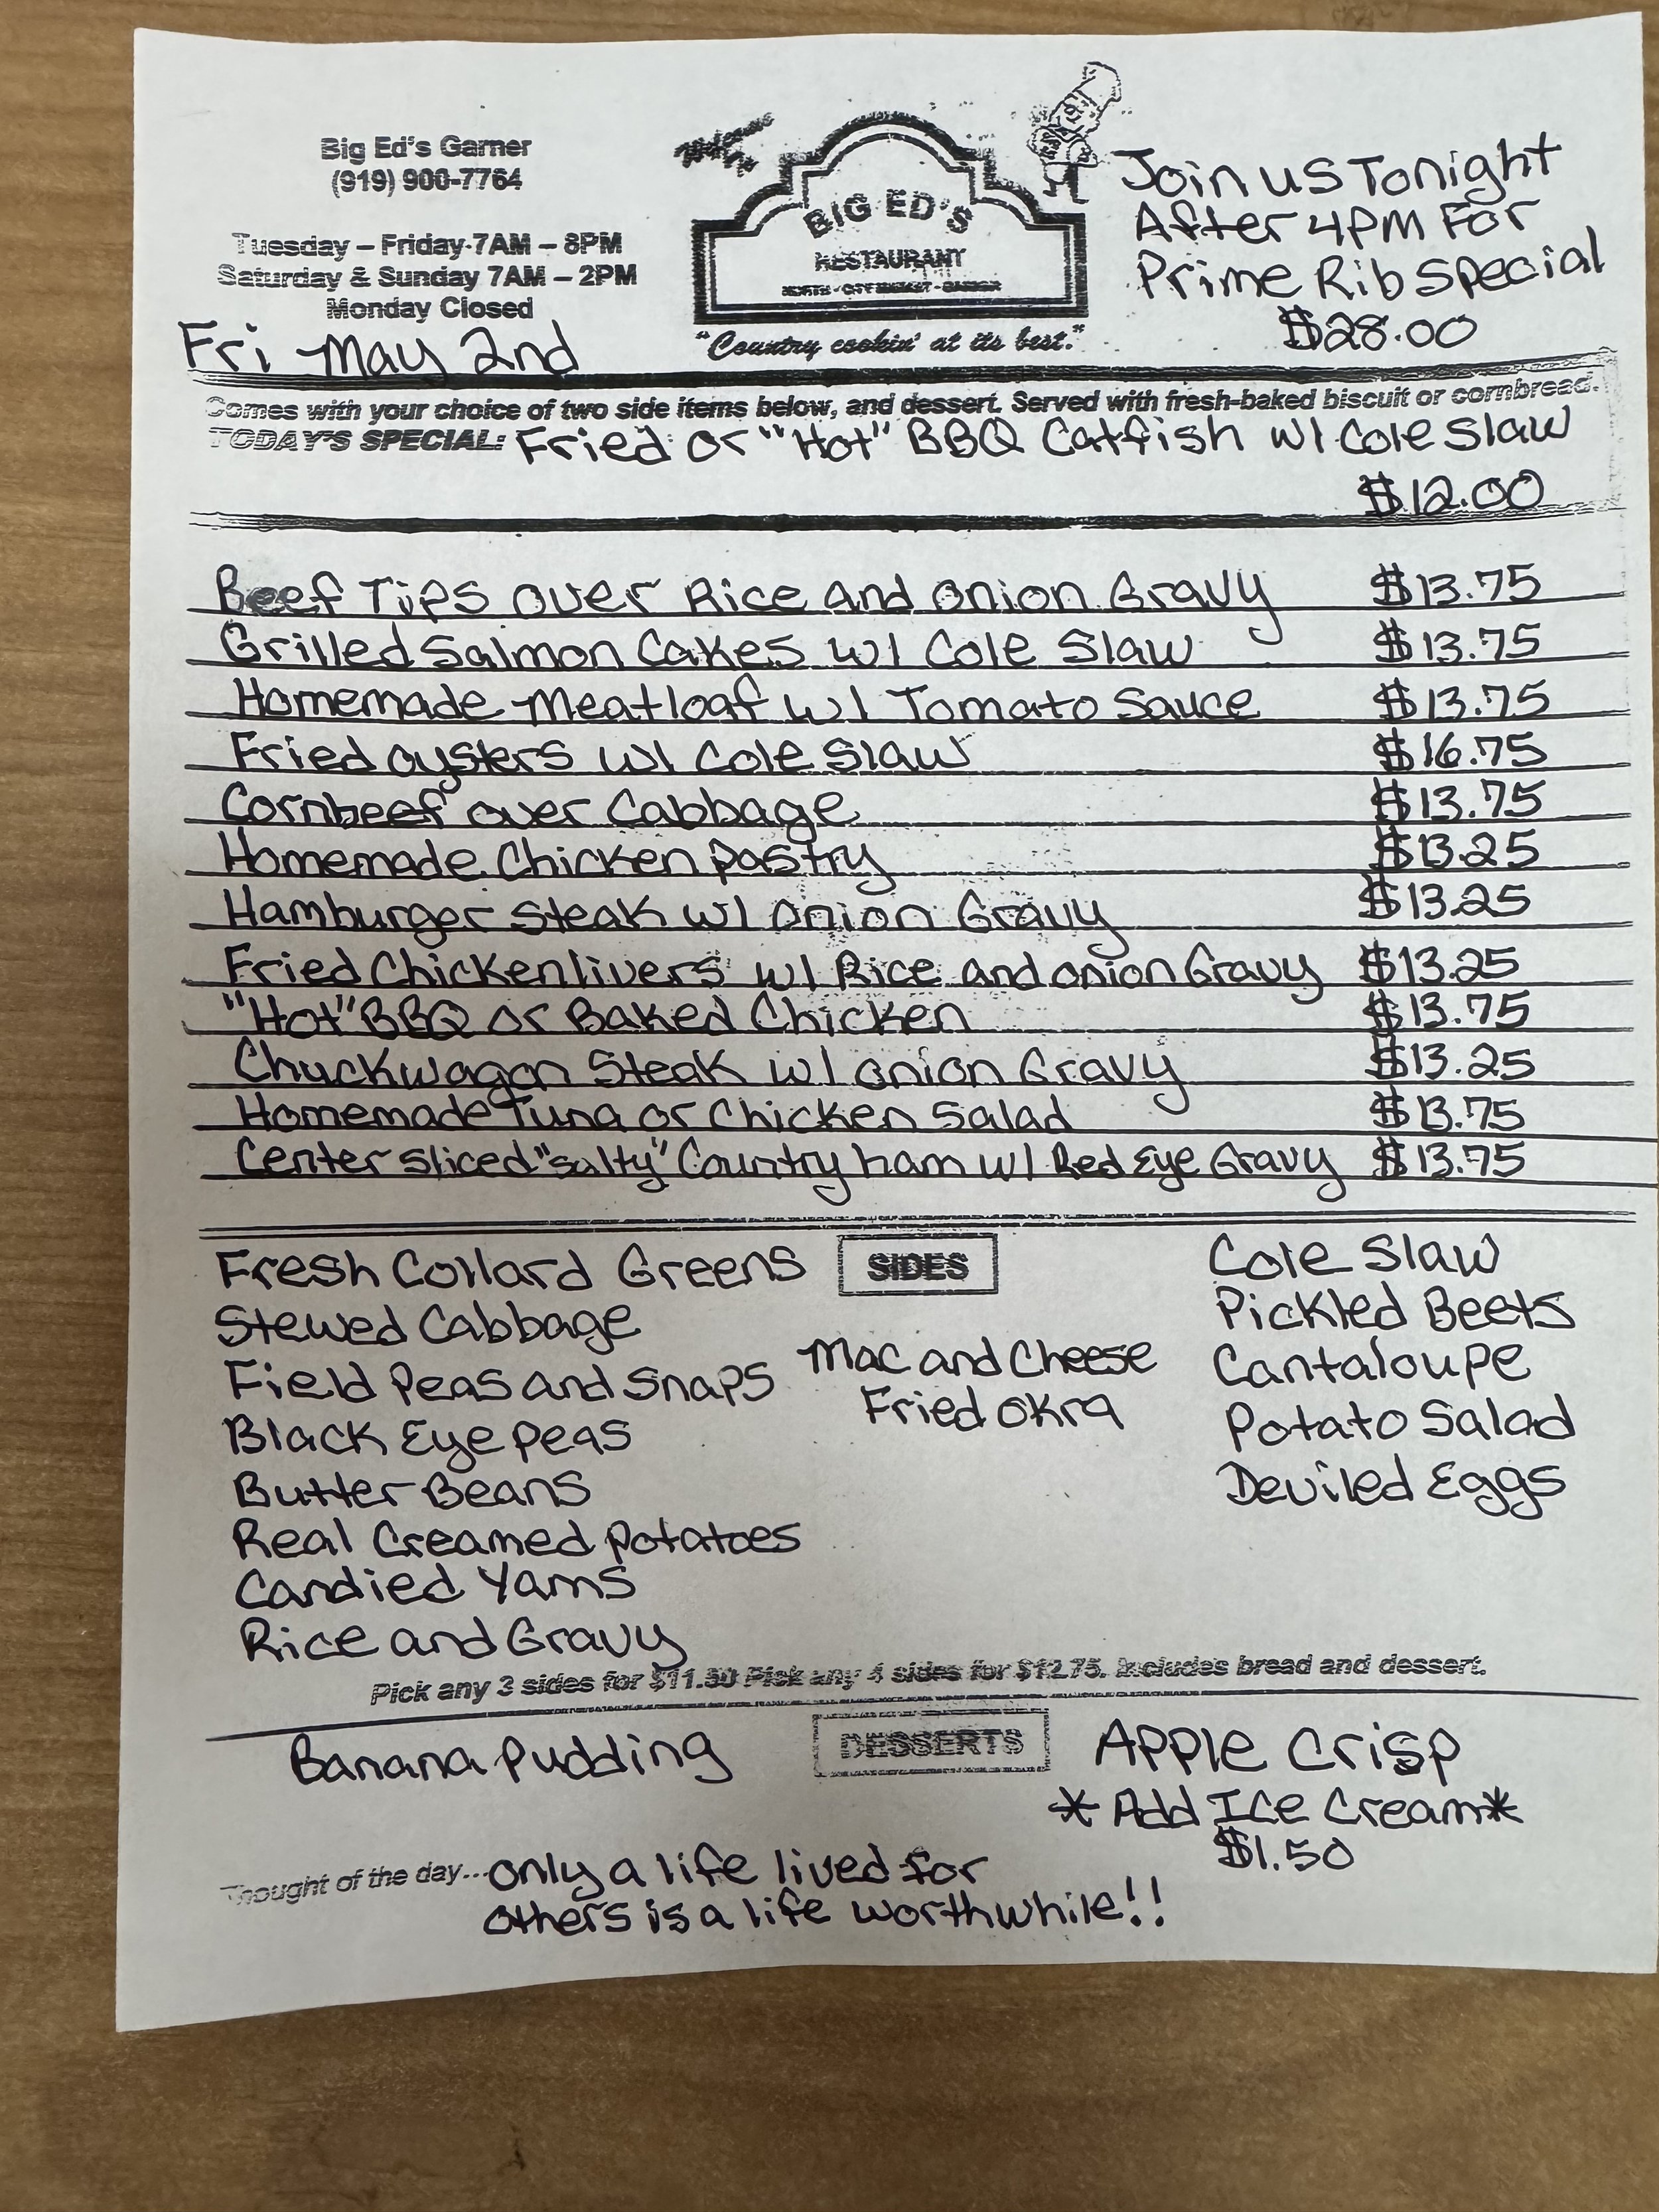 Big Ed's Garner
(919) 900-7764
Tuesday – Friday 7AM – 8PM
Saturday & Sunday 7AM – 2PM
Monday Closed
Fri May 2nd
BIG ED'S
RESTAURANT
"Country cookin' at its best."
Join us Tonight
After 4pm For
Prime Rib Special
$28.00
Comes with your choice of two side items below, and dessert. Served with fresh-baked biscuit or cornbread.
TODAY'S SPECIAL: Fried or "Hot" BBQ Catfish w/ Cole Slaw
$12.00
Beef Tips over Rice and onion Gravy $13.75
Grilled Salmon Cakes w/ Cole Slaw $13.75
Homemade Meatloaf w/ Tomato Sauce $13.75
Fried oysters w/ Cole Slaw $16.75
Cornbeef over Cabbage $13.75
Homemade Chicken pastry $13.25
Hamburger Steak w/ onion Gravy $13.25
Fried Chicken livers w/ Rice and onion Gravy $13.25
"Hot" BBQ or Baked Chicken $13.75
Chuckwagon Steak w/ onion Gravy $13.25
Homemade Tuna or Chicken Salad $13.75
Center Sliced "salty" Country ham w/ Red Eye Gravy $13.75
SIDES
Fresh Collard Greens
Stewed Cabbage
Field Peas and Snaps
Black Eye peas
Butter Beans
Real Creamed potatoes
Candied Yams
Rice and Gravy
Mac and Cheese
Fried okra
Cole Slaw
Pickled Beets
Cantaloupe
Potato Salad
Deviled Eggs
Pick any 3 sides for $11.50 Pick any 4 sides for $12.75. Includes bread and dessert.
DESSERTS
Banana Pudding
Apple Crisp
*Add Ice Cream*
$1.50
Thought of the day... only a life lived for
others is a life worthwhile!!